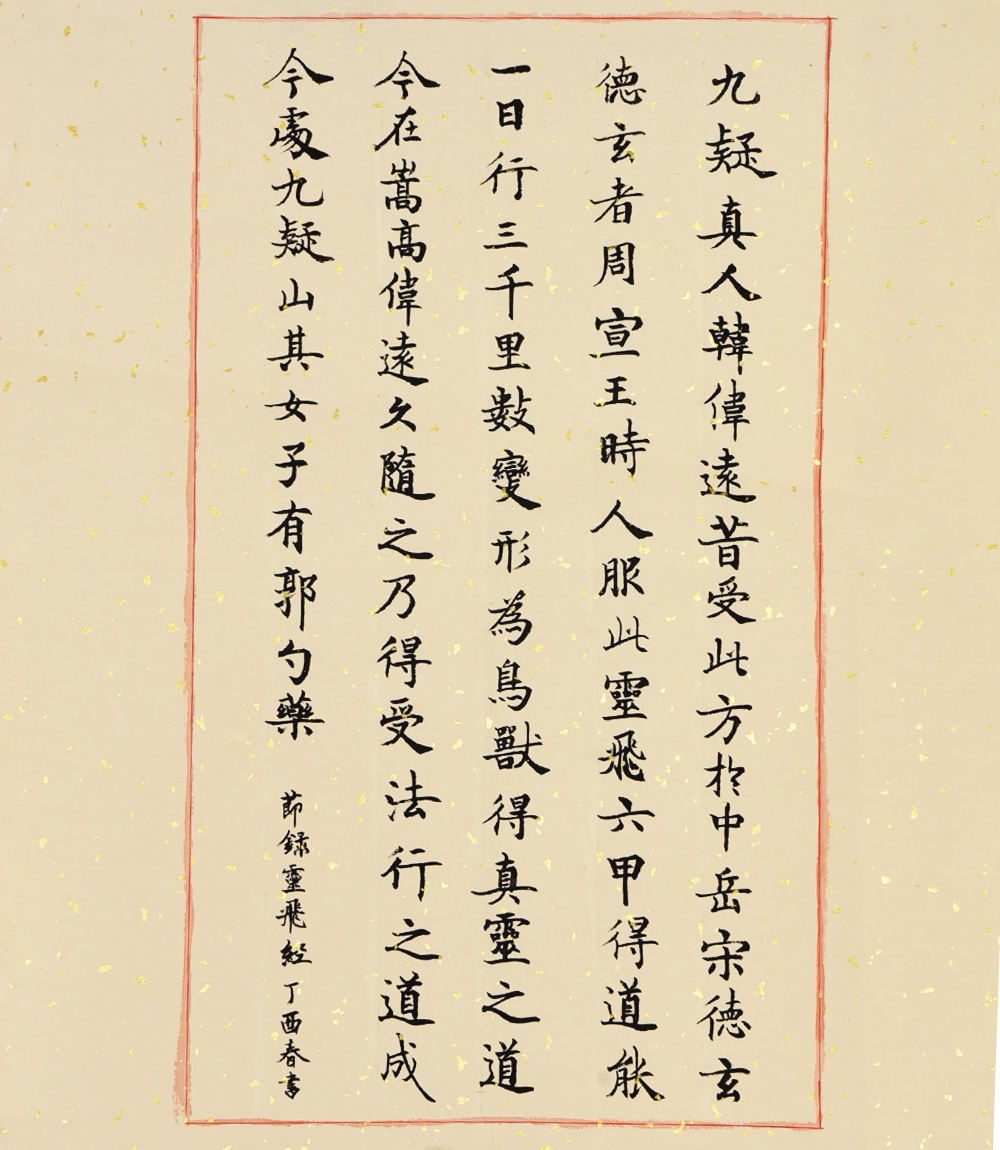 九疑真人韓偉遠昔受此方於中岳宋德玄
德玄者周宣王時人服此靈飛六甲得道能
一日行三千里數變形為鳥獸得真靈之道
今在嵩高偉遠久隨之乃得受法行之道成
今處九疑山其女子有郭勺藥
節録靈飛經丁酉春書